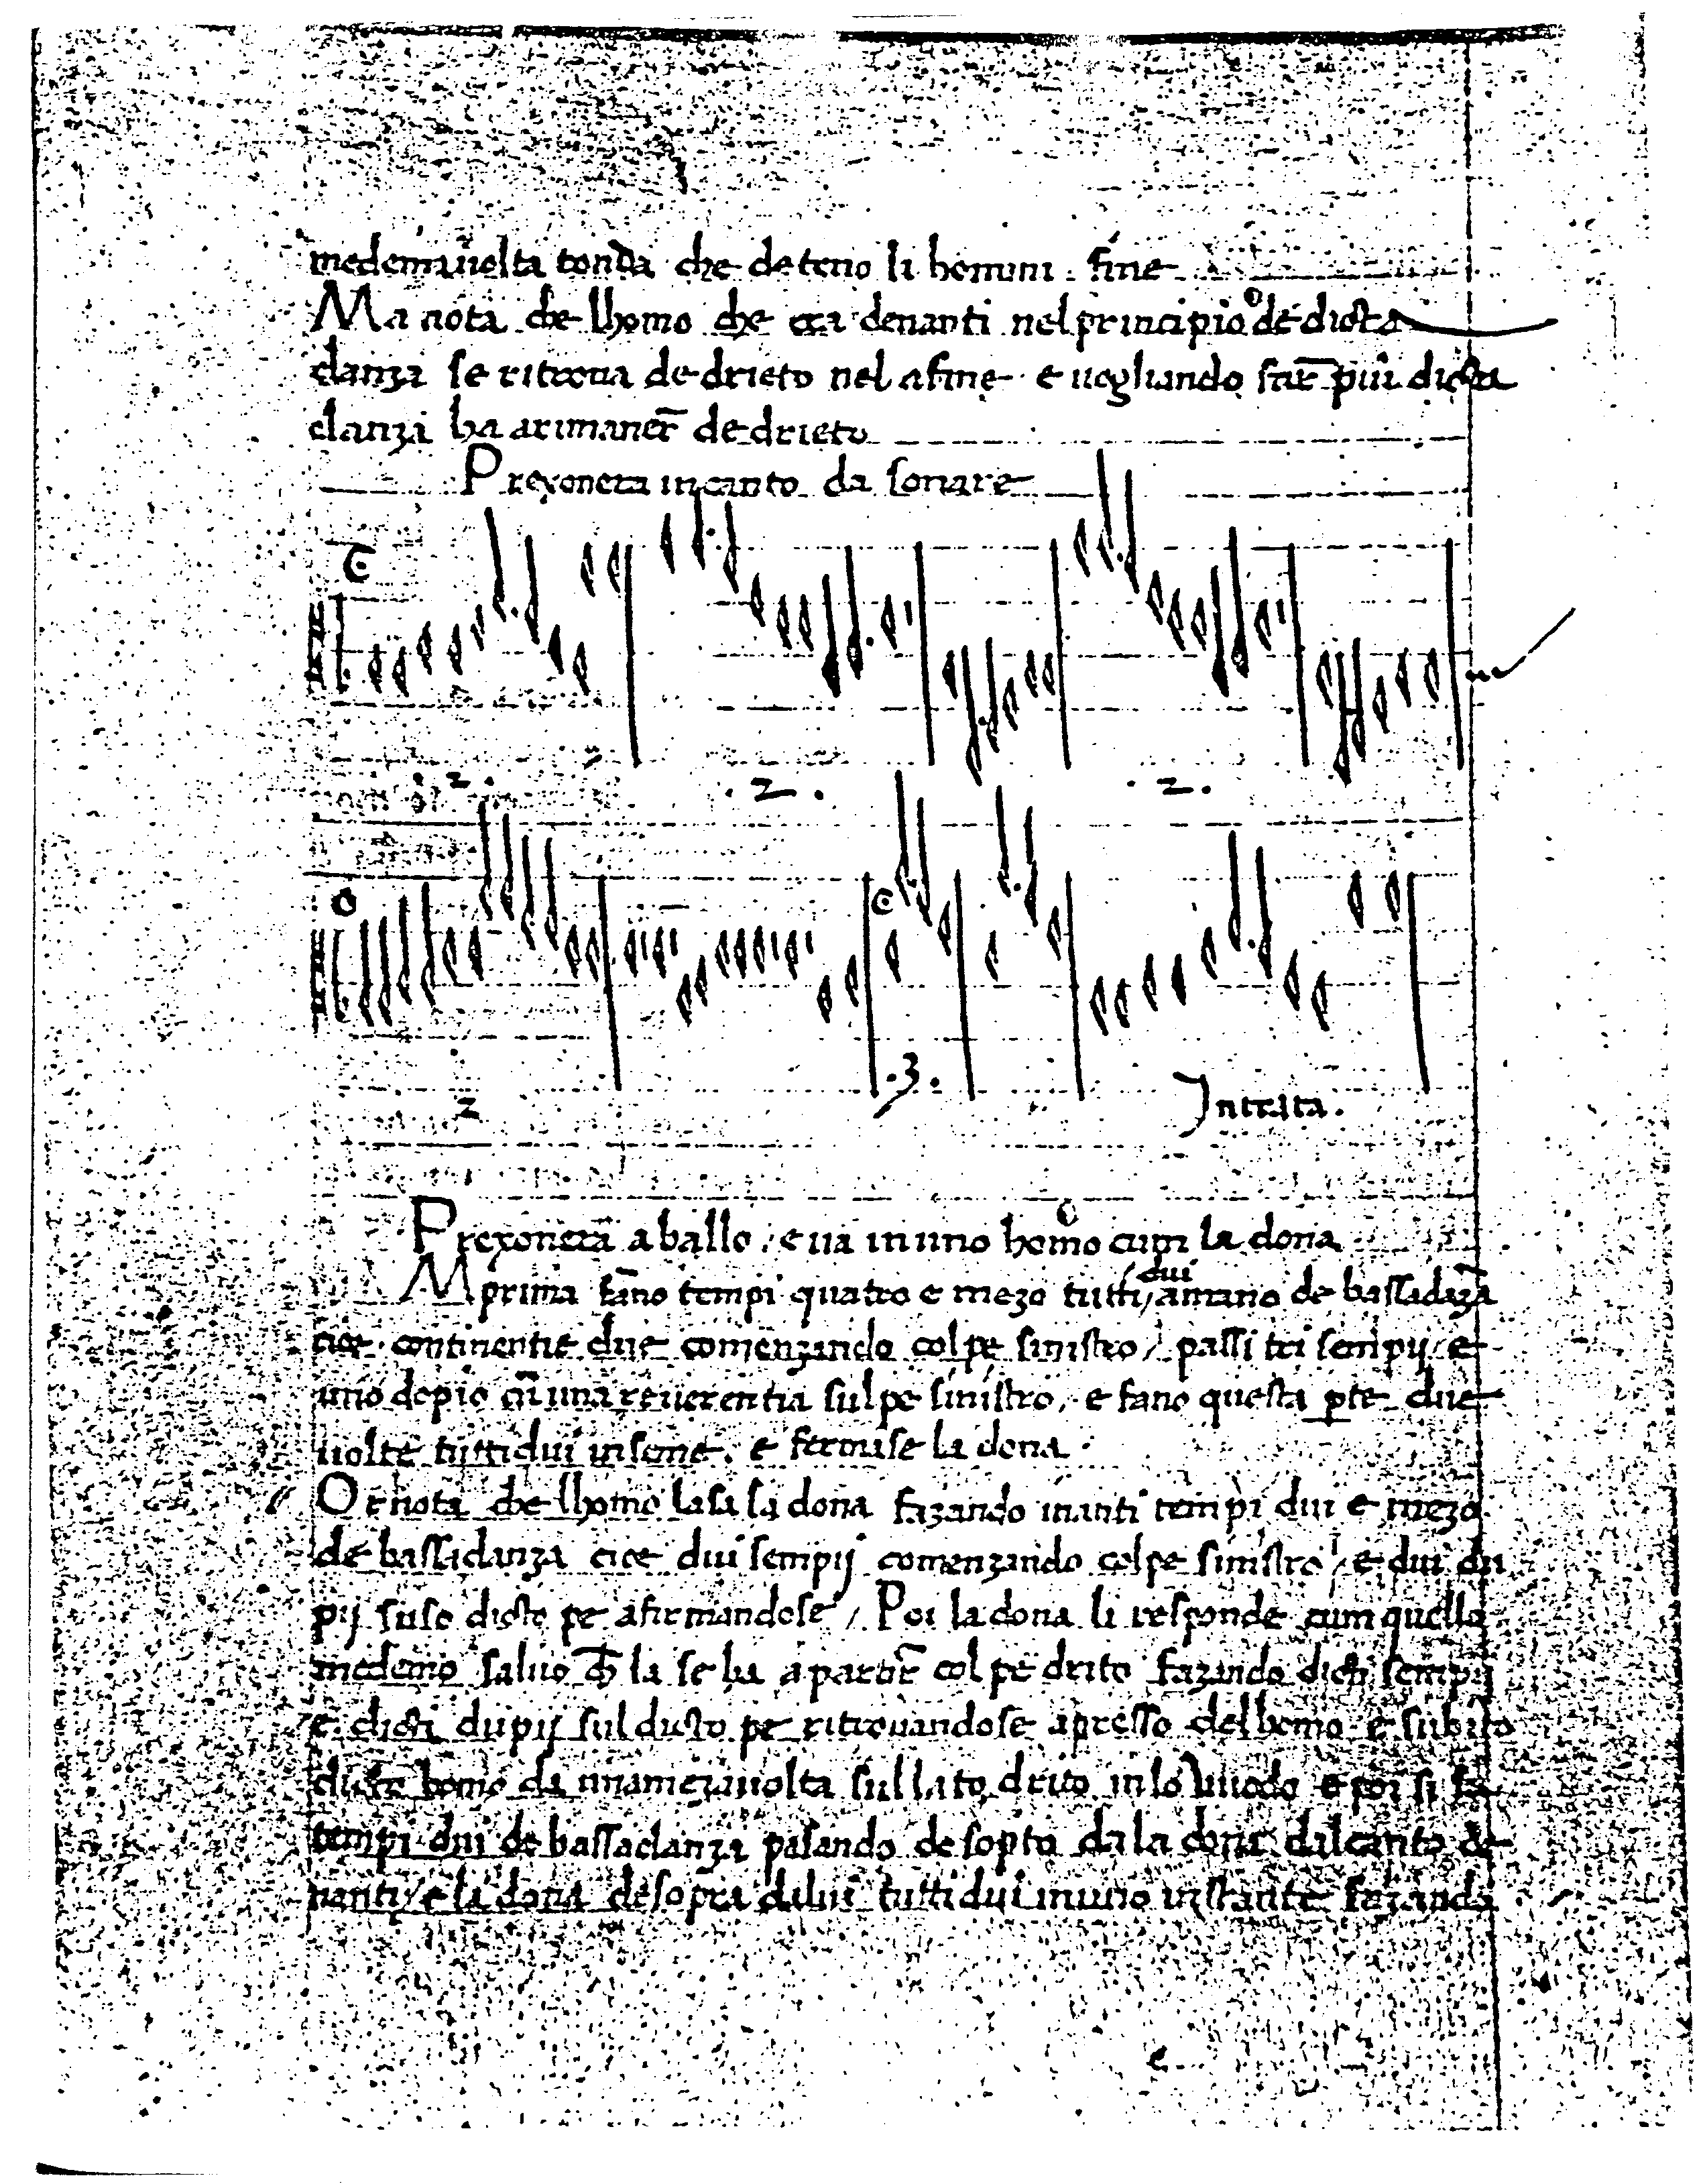 medema volta tonda che deteno li homini . fine
Ma nota che lhomo che era denanti nel principio de dicta
danza se ritrova de drieto nel a fine e uogliando far̄ piui dicta
danza ha arimaner̄ de drieto
Prexonera in canto da sonare
. 2 .
. 2 .
. 2 .
2
. 3 .
Intrata .
Prexonera a ballo / e va in uno homo cum la dona
M prima fāno tempi quatro e mezo tutti / dui a mano de bassadāza
cioe continentie due comenzando col pe sinistro / passi tri sempij e
uno dopio cū una reuerentia sul pe sinistro . e fano questa p̱te due
uolte tutti dui inseme . e fermase la dona .
Or nota che lhomo lasa la dona fazando inanti tempi dui e mezo
de bassadanza cioe dui sempij comenzando col pe sinistro / e dui du
pij suso dicto pe afirmandose / Poi la dona li responde cum quello
medemo saluo ch̄ la se ha a partir̄ col pe drito fazando dicti sempij
e dicti dupij sul dicto pe ritrouandose apresso del homo e subito
homo da una meza uolta sul lato drito in lo e poi si fa
tempi dui de bassadanza pasando de sopto da la dona dal canto de
nanti / e la dona de sopra da lui tutti dui in uno instante fazando